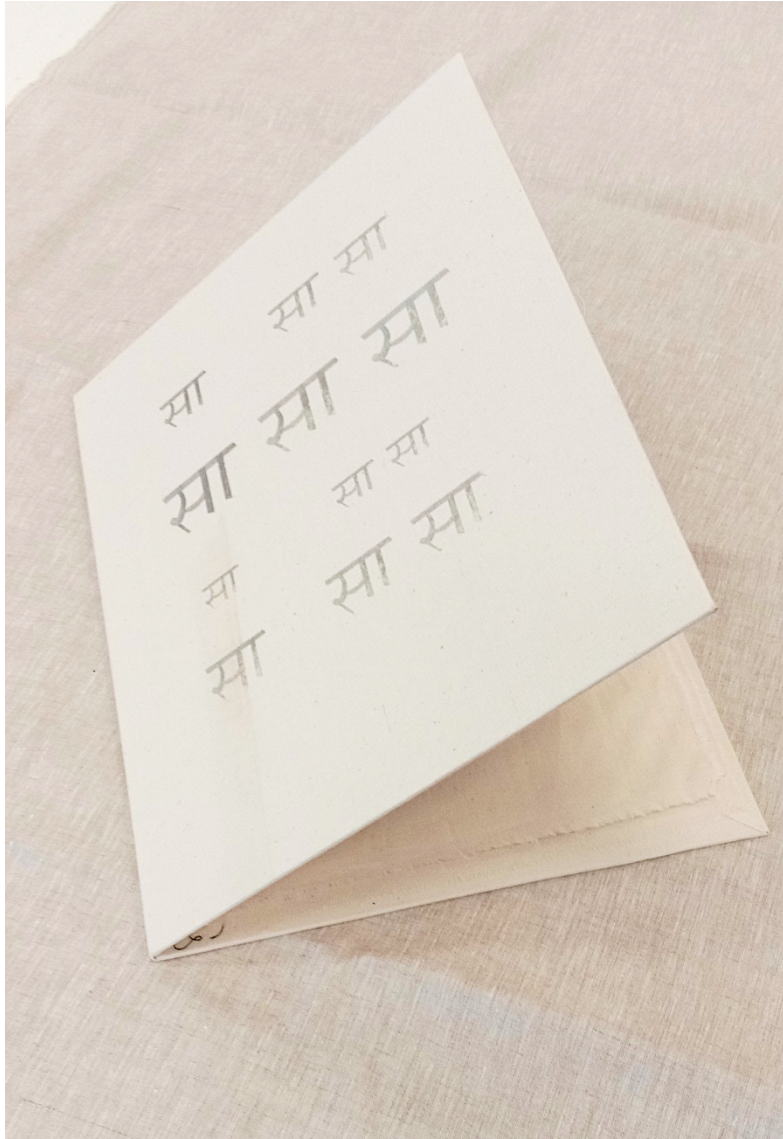 सा सा सा
सा सा सा
सा सा सा
सा सा सा